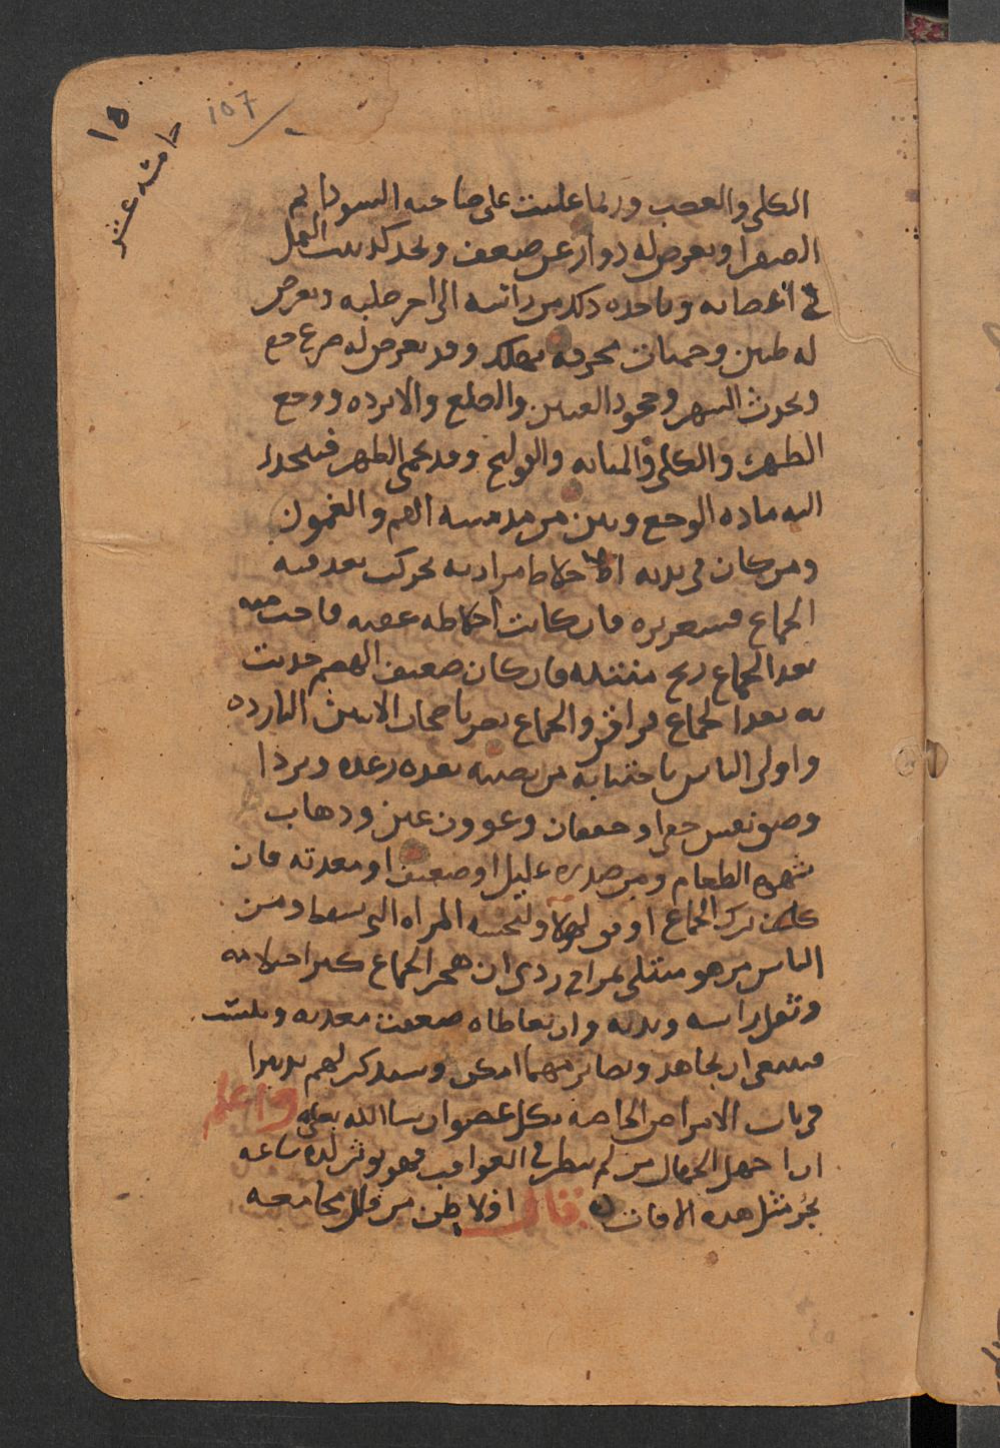 107
١٥
خامسه عشر
الكلى والعصب وربما غلبت على صاحبه السودا ثم
الصفرا ويعرض له دوار عن ضعف ويجد كدبيب النمل
في اعضائه وياخذه ذلك من راسه الى اخر صلبه ويعرض
له طنين وحميات محرقة مهلكه وقد يعرض له صرع مع
ويحدث السهر وجحوظ العينين والصلع والابرده ووجع
الظهر والكلى والمثانه والقولنج وقد يحمى الظهر فينجذب
اليه ماده الوجع وينتن من فمه الفم والغمور
ومن كان في بدنه اخلاط مراريه تحركت بعد فيه
الجماع قشعريره فان كانت اخلاطه عفنه فاحت منه
بعد الجماع ريح منتنه فان كان ضعيف الهضم حدثت
به بعد الجماع قراقر والجماع يضر باصحاب الابدان البارده
واولى الناس باجتنابه من يصيبه بعده رعده وبردا
وضيق نفس خفي او خفقان وغوور عين وذهاب
شهوة الطعام ومن صدره عليل او ضعيف او معدته فان
ترك الجماع اوفق لهولا وليجتنبه المراه التي تسقط ومن
الناس من هو مبتلى بمزاج ردى ان هجر الجماع كثر احتلامه
وثقل راسه وبدنه وان تعاطاه ضعفت معدته ويبست
فينبغى ان يجاهد ويصابر مهما امكن وسنذكر لهم تدبيرا
في باب الامراض الخاصه بكل عضو ان شا الله تعالى واعلم
ان اجهل الجهال من لم ينظر في العواقب فهو يوثر لذة ساعه
بجر مثل هذه الافات قال افلاطن من قلل مجامعه